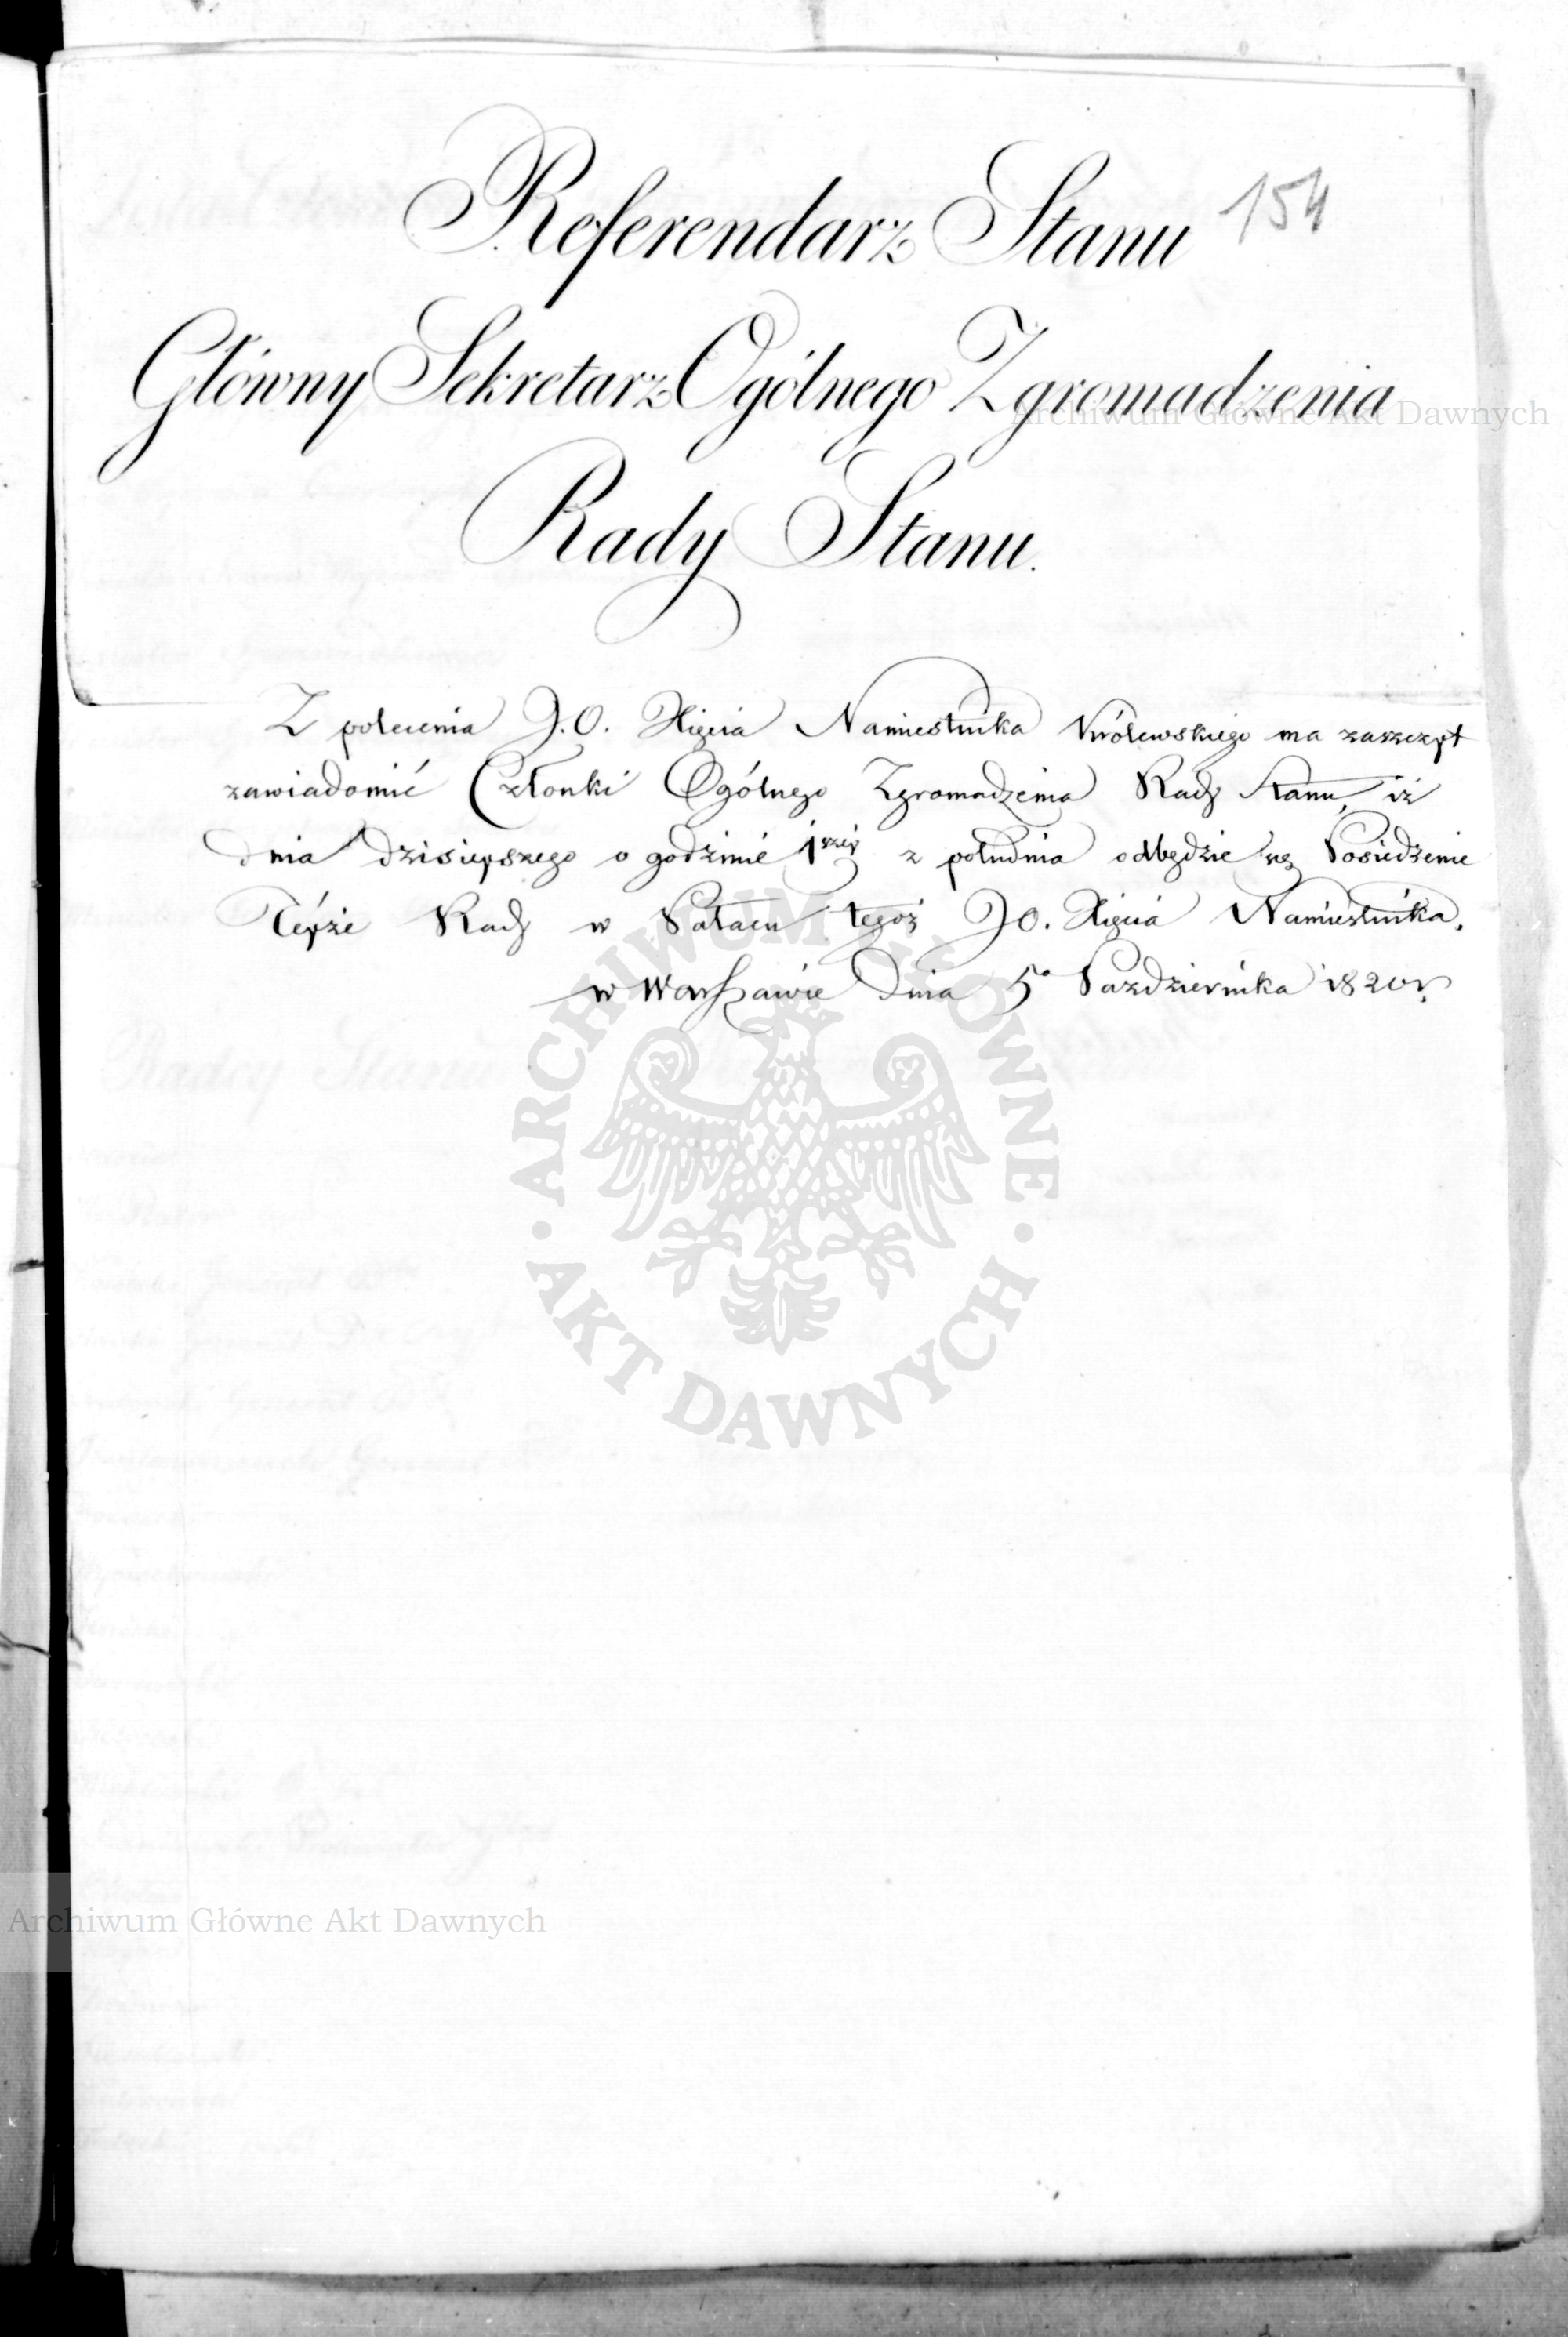 154
Referendarz Stanu
Główny Sekretarz Ogólnego Zgromadzenia
Rady Stanu.
Z polecenia J.O. Xięcia Namiestnika Królewskiego ma zaszczyt
zawiadomić Członki Ogólnego Zgromadzenia Rady Stanu, iż
dnia dzisieyszego o godzinie 1széy z południa odbędzie się Posiedzenie
Téyże Rady w Pałacu tegoż JO. Xięcia Namiestnika.
w Warszawie dnia 5o Października 1820 r.
Radcy Stanu
Archiwum Główne Akt Dawnych
ARCHIWUM GŁÓWNE AKT DAWNYCH
Archiwum Główne Akt Dawnych